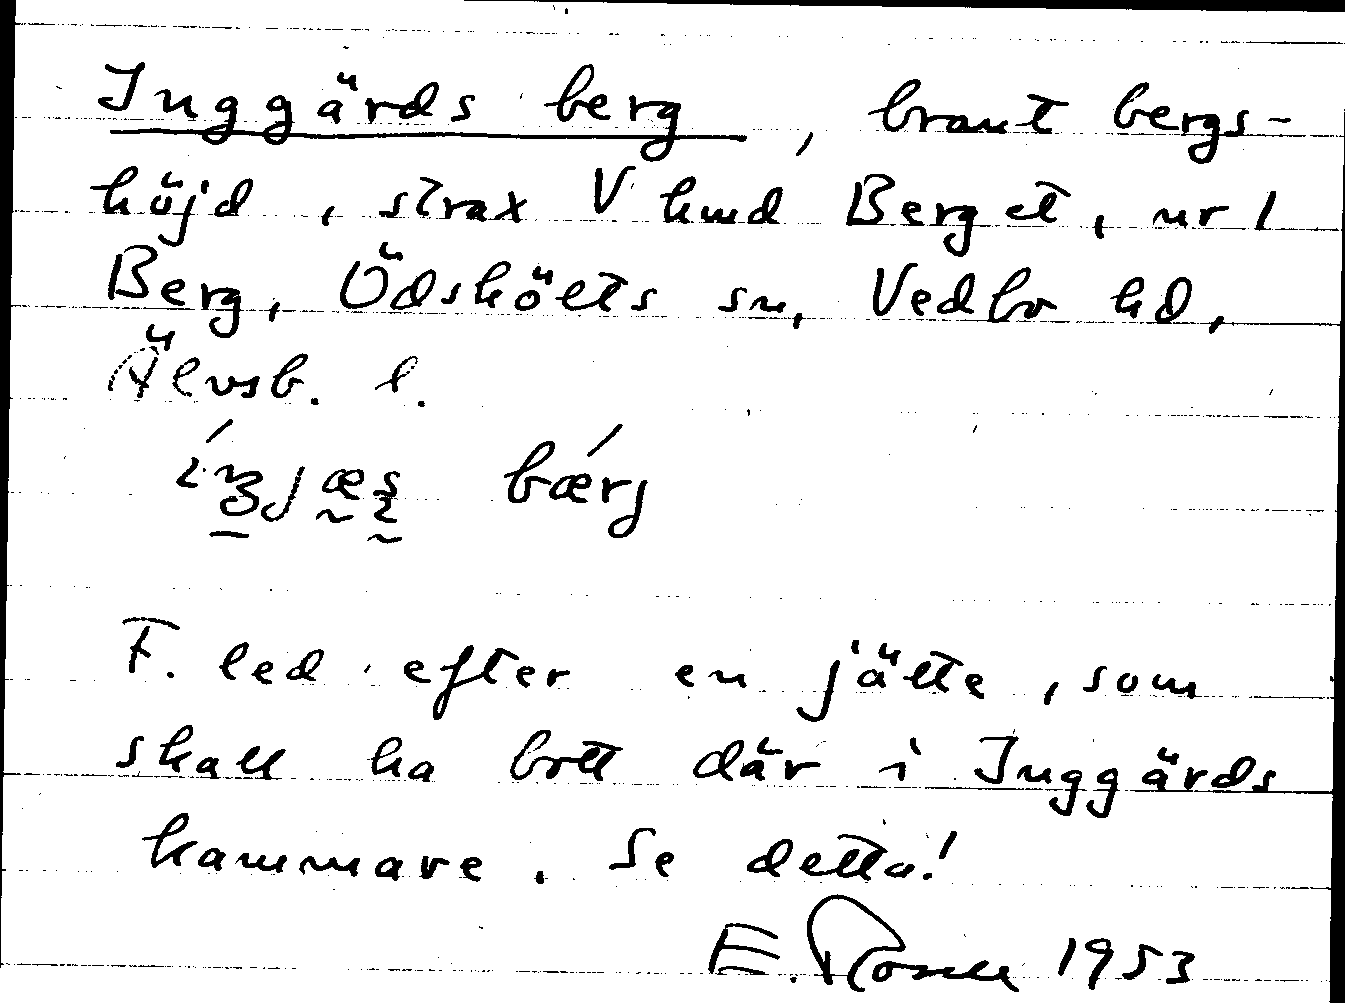 Inggärds berg, brant bergs-
höjd, strax V hmd Berget, nr 1
Berg, Ödskölts sn, Vedbo hd,
Älvsb. l.
bǽrj
F. led efter en jätte, som
skall ha bott där i Inggärds
kammare. Se detta!
E. 1953